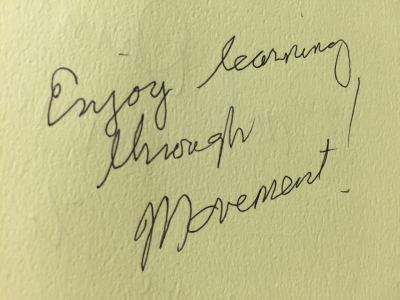 Enjoy learning
through
Movement!